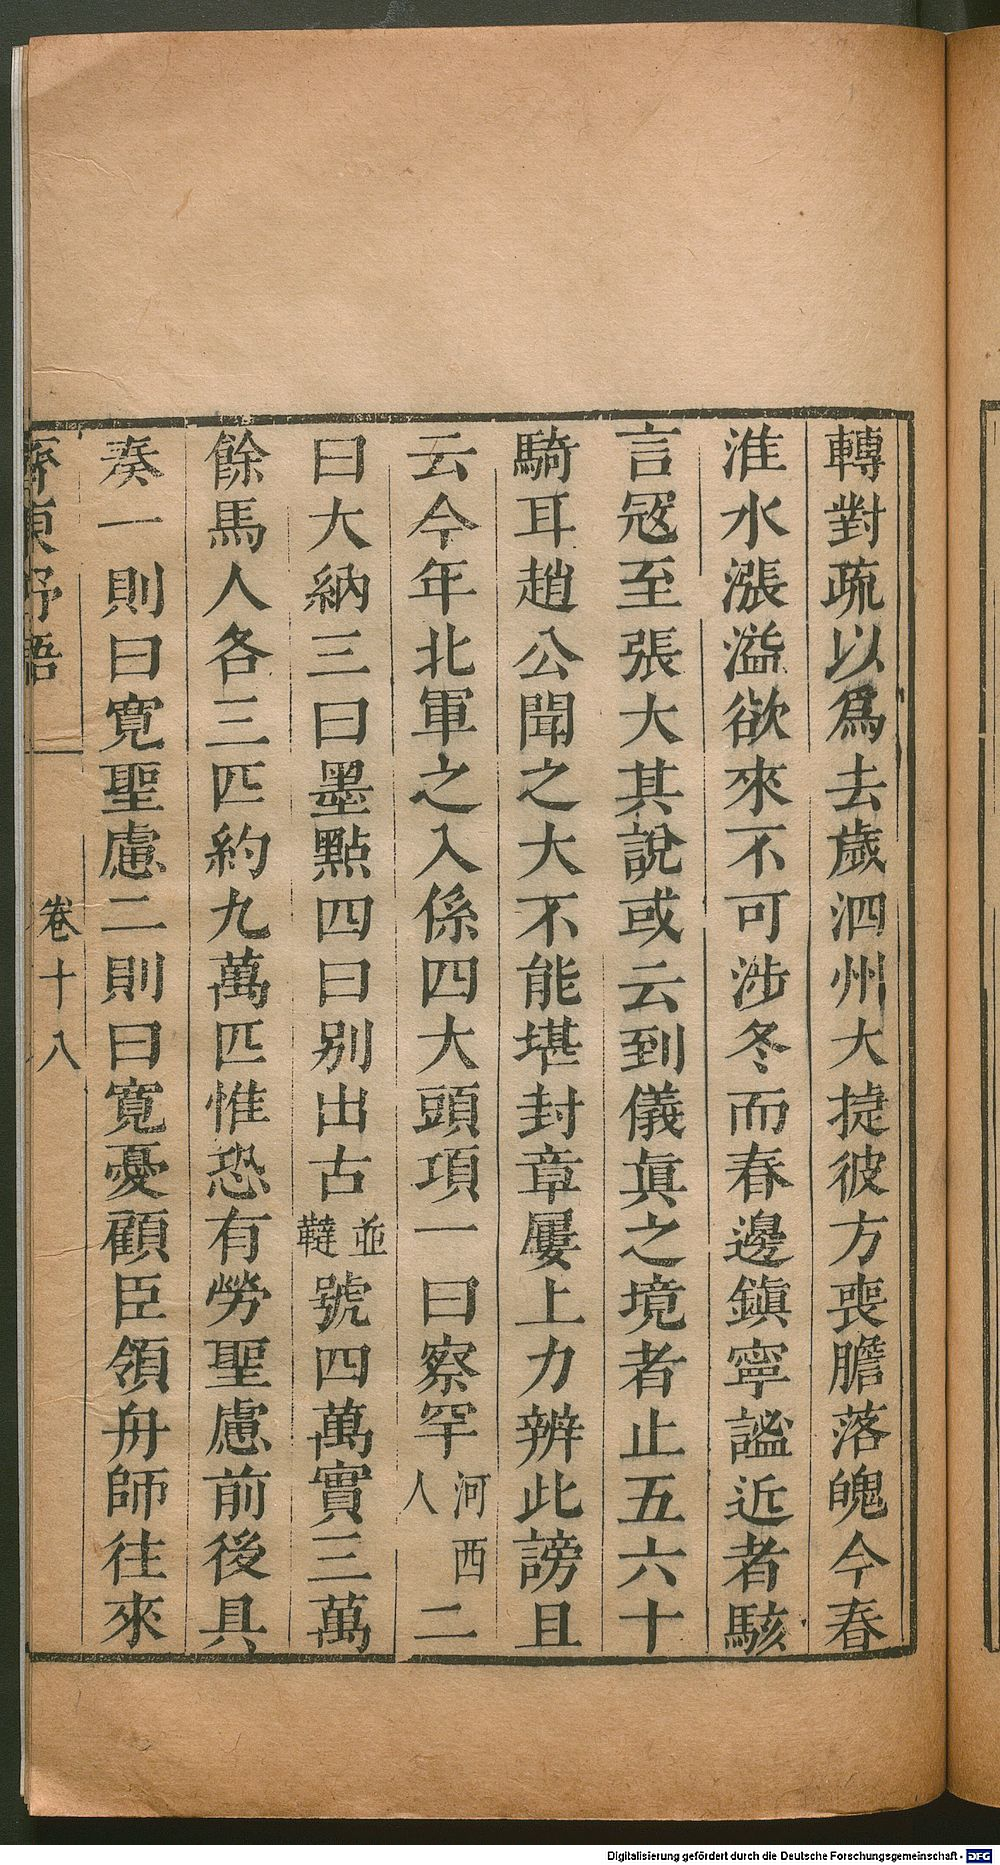 轉對疏以爲去歲泗州大捷彼方喪膽落魄今春
淮水漲溢欲來不可涉冬而春邊鎭寧謐近者駭
言宼至張大其說或云到儀眞之境者止五六十
騎耳趙公聞之大不能堪封章屢上力辨此謗且
云今年北軍之入係四大頭項一曰察罕河西人二
曰大納三曰墨點四曰別出古並韃號四萬實三萬
餘馬人各三匹約九萬匹惟恐有勞聖慮前後具
奏一則曰寬聖慮二則曰寬憂顧臣領舟師往來
齊東野語 卷十八
Digitalisierung gefördert durch die Deutsche Forschungsgemeinschaft - DFG